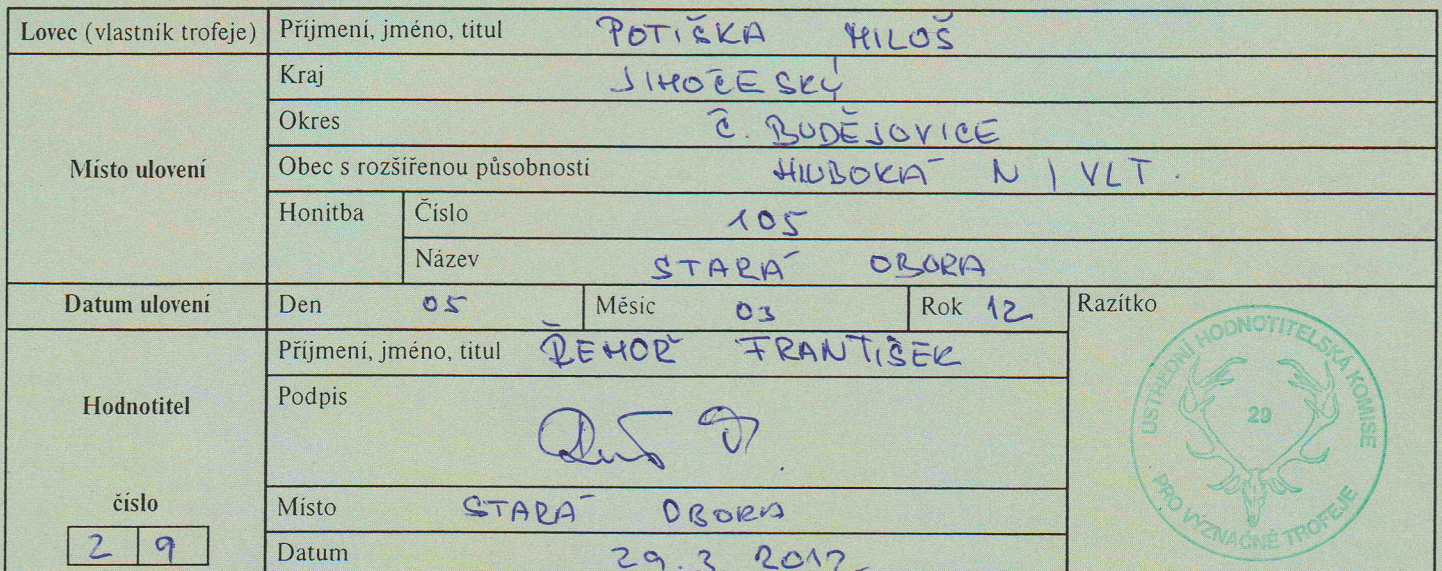 Lovec (vlastník trofeje) Příjmení, jméno, titul POTIŠKA MILOŠ
Místo ulovení
Kraj JIHOČESKÝ
Okres Č. BUDĚJOVICE
Obec s rozšířenou působností HLUBOKÁ N / VLT.
Honitba Číslo 105
Název STARÁ OBORA
Datum ulovení Den 05 Měsíc 03 Rok 12 Razítko
Hodnotitel
Příjmení, jméno, titul ŘEHOŘ FRANTIŠEK
Podpis
číslo
2 9
Místo STARÁ OBORA
Datum 29.3 2012
ÚSTŘEDNÍ HODNOTITELSKÁ KOMISE
29
PRO VÝZNAČNÉ TROFEJE